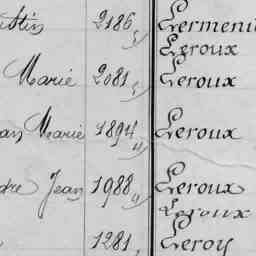 2186 Lermeni
Leroux
Marie 2081 Leroux
Marie 1894 Leroux
dre Jean 1988 Leroux
Leroux
1281 Leroy